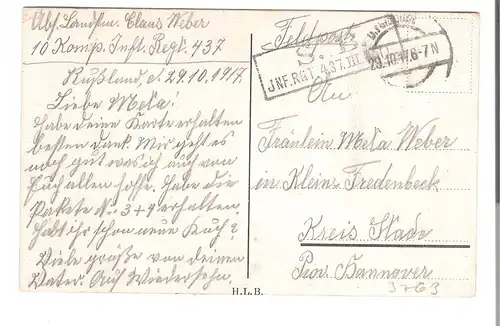 Abs. Landstm. Claus Weber
10 Komp. Inft. Regt. 437
Rußland, d. 29.10.1917
Liebe Meta!
Habe deine Karte erhalten
besten Dank. Mir geht es
noch gut was ich auch von
Euch allen hoffe. Habe die
Pakete No. 3+4 erhalten.
Habt Ihr schon neue Kuh?
Viele grüße von deinen
Vater. Auf Wiedersehn.
Feldpost
S. B.
JNF. RGT. 437. III.
29.10.17.6-7N
An
Fräulein Meta Weber
in Klein Fredenbeck
Kreis Stade
Prov. Hannover
3763
H.L.B.